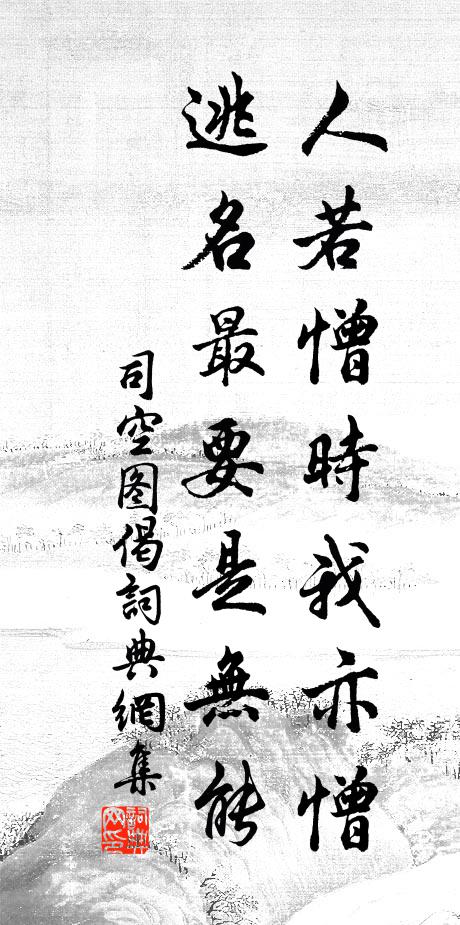 人若憎時我亦憎
逃名最要是無能
司空图偈詞典網集
詞典网印